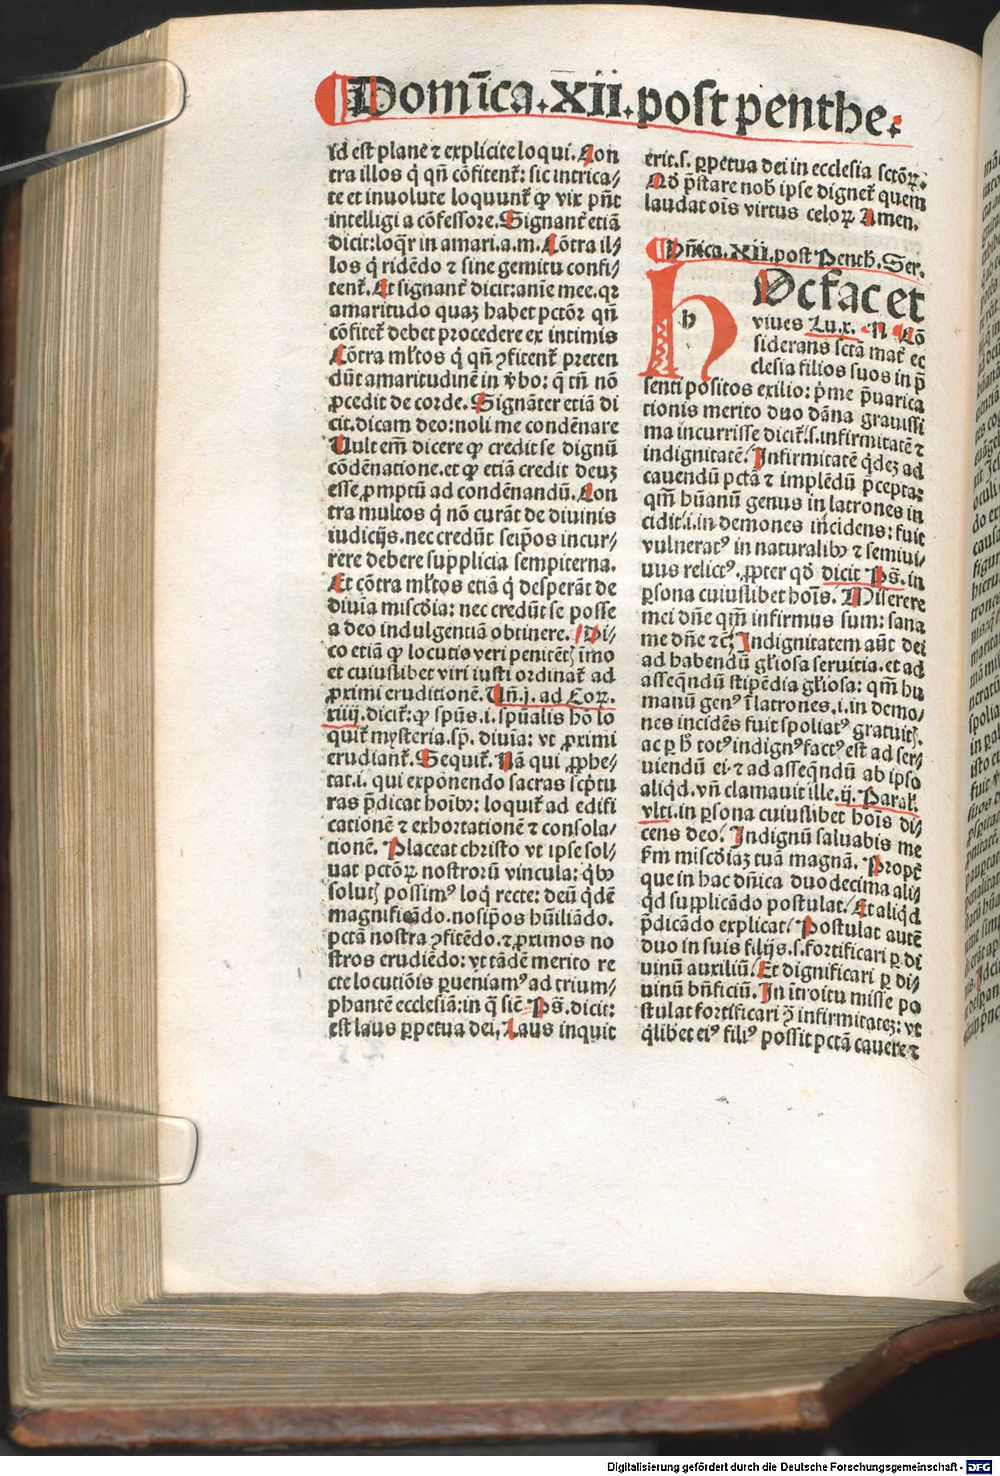 Domīca.XII.post penthe.
id est plane ⁊ explicite loqui. Con
tra illos q̇ qn̄ cōfitent᷑: sic intrica/
te et inuolute loquunt᷑ ꝙ vix pn̄t
intelligi a cōfessore. Signant᷑ etiā
dicit: loq̄r in amari.a.m. Cōtra il/
los q̇ ridēdo ⁊ sine gemitu confi/
tent᷑. Et signant᷑ dicit: anīe mee. qꝛ
amaritudo quaꝫ habet pctōꝛ qn̄
cōfitet᷑ debet procedere ex intimis
Cōtra ml̄tos q̇ qn̄ ꝯfitent᷑ preten
dūt amaritudinē in v̄bo: q̇ tn̄ nō
ꝓcedit de corde. Signāter etiā di
cit. dicam deo: noli me condēnare
Uult em̄ dicere ꝙ credit se dignū
cōdēnatione. et ꝙ etiā credit deuꝫ
esse ꝓmptū ad condēnandū. Con
tra multos q̇ nō curāt de diuinis
iudicijs. nec credūt seip̄os incur/
rere debere supplicia sempiterna.
Et cōtra ml̄tos etiā q̇ desperāt de
diuīa misc̄dia: nec credūt se posse
a deo indulgentiā obtinere. Di/
co etiā ꝙ locutio veri penitētꝭ īmo
et cuiuslibet viri iusti ordinat᷑ ad
ꝓximi eruditionē. Un̄.j. ad Coꝝ.
xiiij. dicit᷑: ꝙ spūs.i.spūalis hō lo
quit᷑ mysteria. sp̄. diuīa: vt ꝓximi
erudiant᷑. Sequit᷑. Nā qui ꝓphe/
tat.i. qui exponendo sacras scp̄tu
ras p̄dicat hoībꝫ: loquit᷑ ad edifi
cationē ⁊ exhortationē ⁊ consola/
tionē. Placeat christo vt ipse sol/
uat pctōꝝ nostrorū vincula: q̇bꝫ
solutꝭ possimꝰ loq̇ recte: deū q̇dē
magnificādo. nosip̄os hūiliādo.
pctā nostra ꝯfitēdo. ⁊ ꝓximos no
stros erudiēdo: vt tādē merito re
cte locutiōis ꝑueniamꝰ ad trium/
phantē ecclesiā: in q̄ sic̄ Ps̄. dicit:
est laus ꝑpetua dei, Laus inquit
erit.s. ꝑpetua dei in ecclesia sctōꝝ.
Qd̄ p̄stare nob̄ ipse dignet᷑ quem
laudat oīs virtus celoꝝ Amen.
Dn̄ica.XII.post Penth. Ser.
h
HOc fac et
viues Lu.x. N Cō
siderans sctā mat᷑ ec
clesia filios suos in p̄
senti positos exilio: ṗme p̄uarica
tionis merito duo dāna grauissi
ma incurrisse dicit᷑.s. infirmitatē ⁊
indignitatē. Infirmitatē q̇deꝫ ad
cauendū pctā ⁊ implēdū p̄cepta:
qm̄ hūanū genus in latrones in
cidit.i. in demones incidens: fuit
vulneratꝰ in naturalibꝫ ⁊ semiui/
uus relictꝰ. ꝓpter qd̄ dicit Ps̄. in
ꝑsona cuiuslibet hoīs. Miserere
mei dn̄e qm̄ infirmus sum: sana
me dn̄e ⁊c̄. Indignitatem aūt dei
ad habendū gl̄iosa seruitia. et ad
asseq̄ndū stipēdia gl̄iosa: qm̄ hu
manū genꝰ ī latrones.i. in demo/
nes incidēs fuit spoliatꝰ gratuitꝭ.
ac ꝑ h̄ totꝰ indignꝰ factꝰ est ad ser/
uiendū ei. ⁊ ad asseq̄ndū ab ipso
aliq̇d. vn̄ clamauit ille.ij. Paral̄.
vlti. in ꝑsona cuiuslibet hoīs di/
cens deo. Indignū saluabis me
ẜm misc̄diāꝫ tuā magnā. Propt᷑
que in hac dn̄ica duodecima ali/
q̇d supplicādo postulat. Et aliq̇d
p̄dicādo explicat. Postulat autē
duo in suis filijs.s. fortificari ꝑ di
uinū auxiliū. Et dignificari ꝑ di/
uinū bn̄ficiū. In ītroitu misse po
stulat fortificari ꝓ infirmitateꝫ: vt
q̇libet eiꝰ filiꝰ possit pctā cauere ⁊
Digitalisierung gefördert durch die Deutsche Forschungsgemeinschaft - DFG